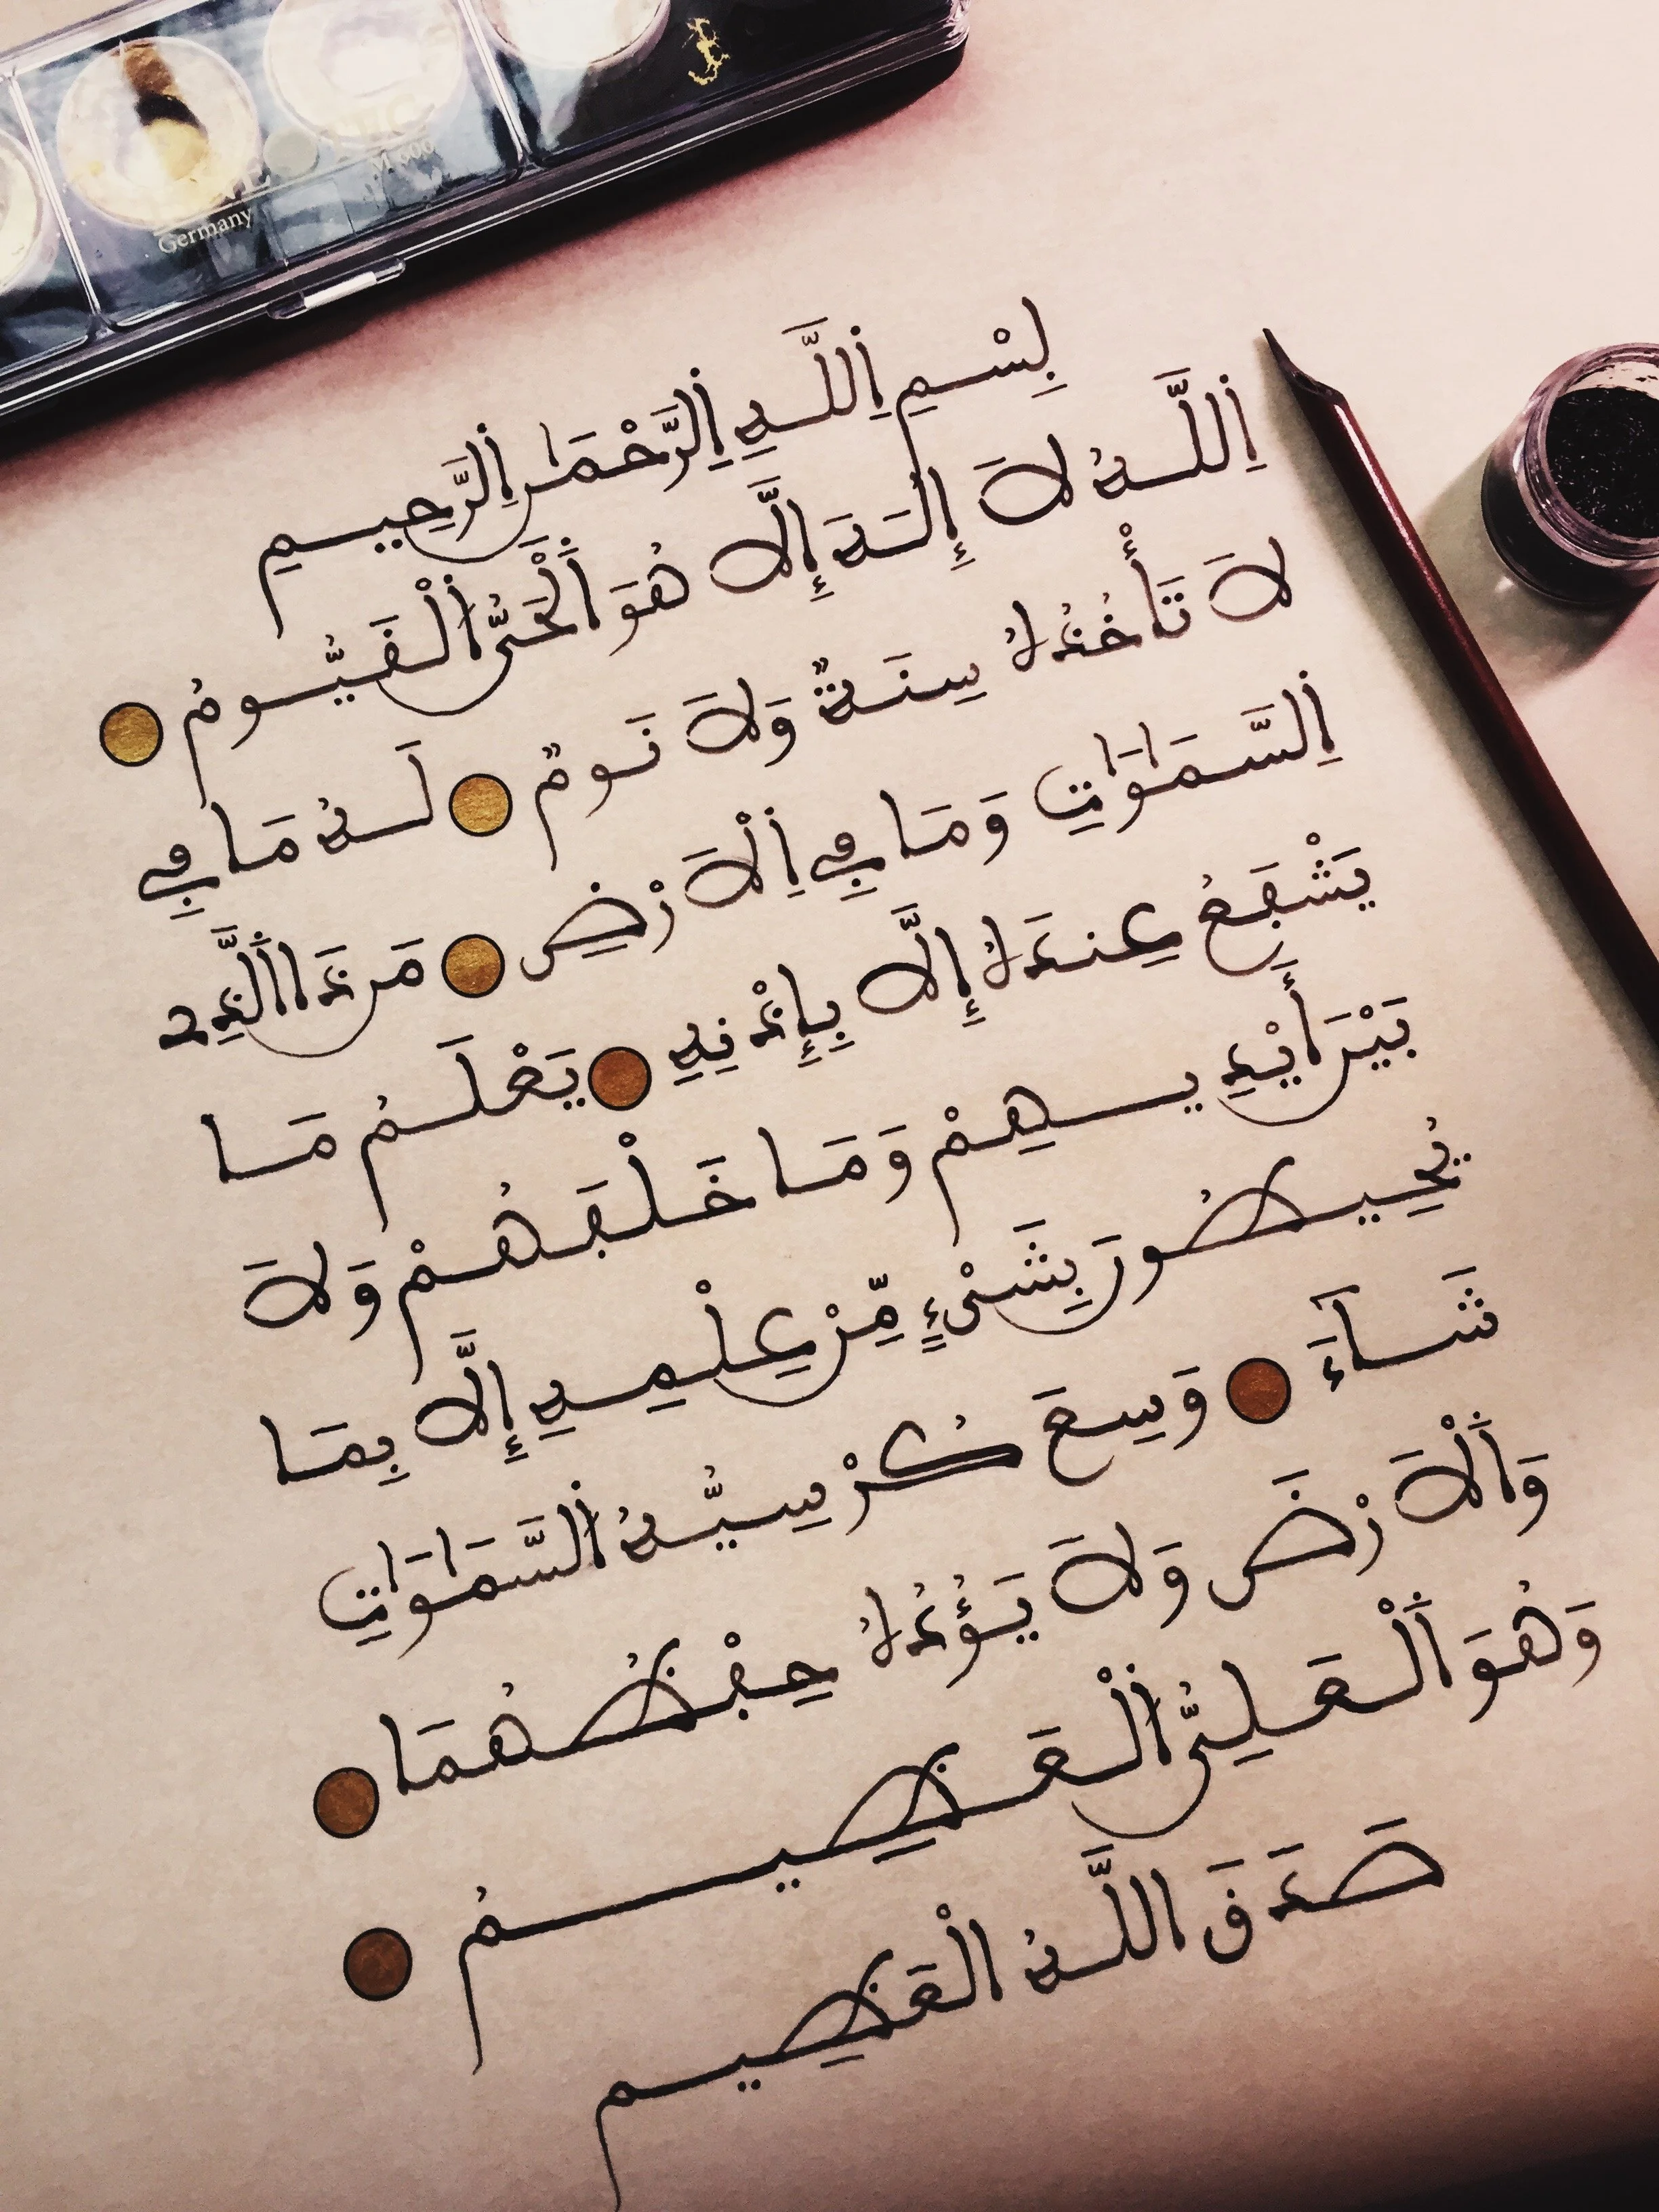 Germany
M 600
بِسْمِ اِللَّهِ اِلرَّحْمَٰنِ اِلرَّحِيمِ
اَللَّهُ لَا إِلَٰهَ إِلَّا هُوَ اَلْحَيُّ اَلْقَيُّومُ
لَا تَأْخُذُهُ سِنَةٌ وَلَا نَوْمٌ لَهُ مَا فِي
اِلسَّمَٰوَٰتِ وَمَا فِي اِلَارْضِ مَن ذَا اَلَّذِي
يَشْفَعُ عِندَهُ إِلَّا بِإِذْنِهِ يَعْلَمُ مَا
بَيْنَ أَيْدِيهِمْ وَمَا خَلْفَهُمْ وَلَا
يُحِيطُونَ بِشَيْءٍ مِّنْ عِلْمِهِ إِلَّا بِمَا
شَآءَ وَسِعَ كُرْسِيُّهُ اُلسَّمَٰوَٰتِ
وَالَارْضَ وَلَا يَؤُدُهُ حِفْظُهُمَا
وَهُوَ اَلْعَلِيُّ اُلْعَظِيمُ
صَدَقَ اللَّهُ الْعَظِيم